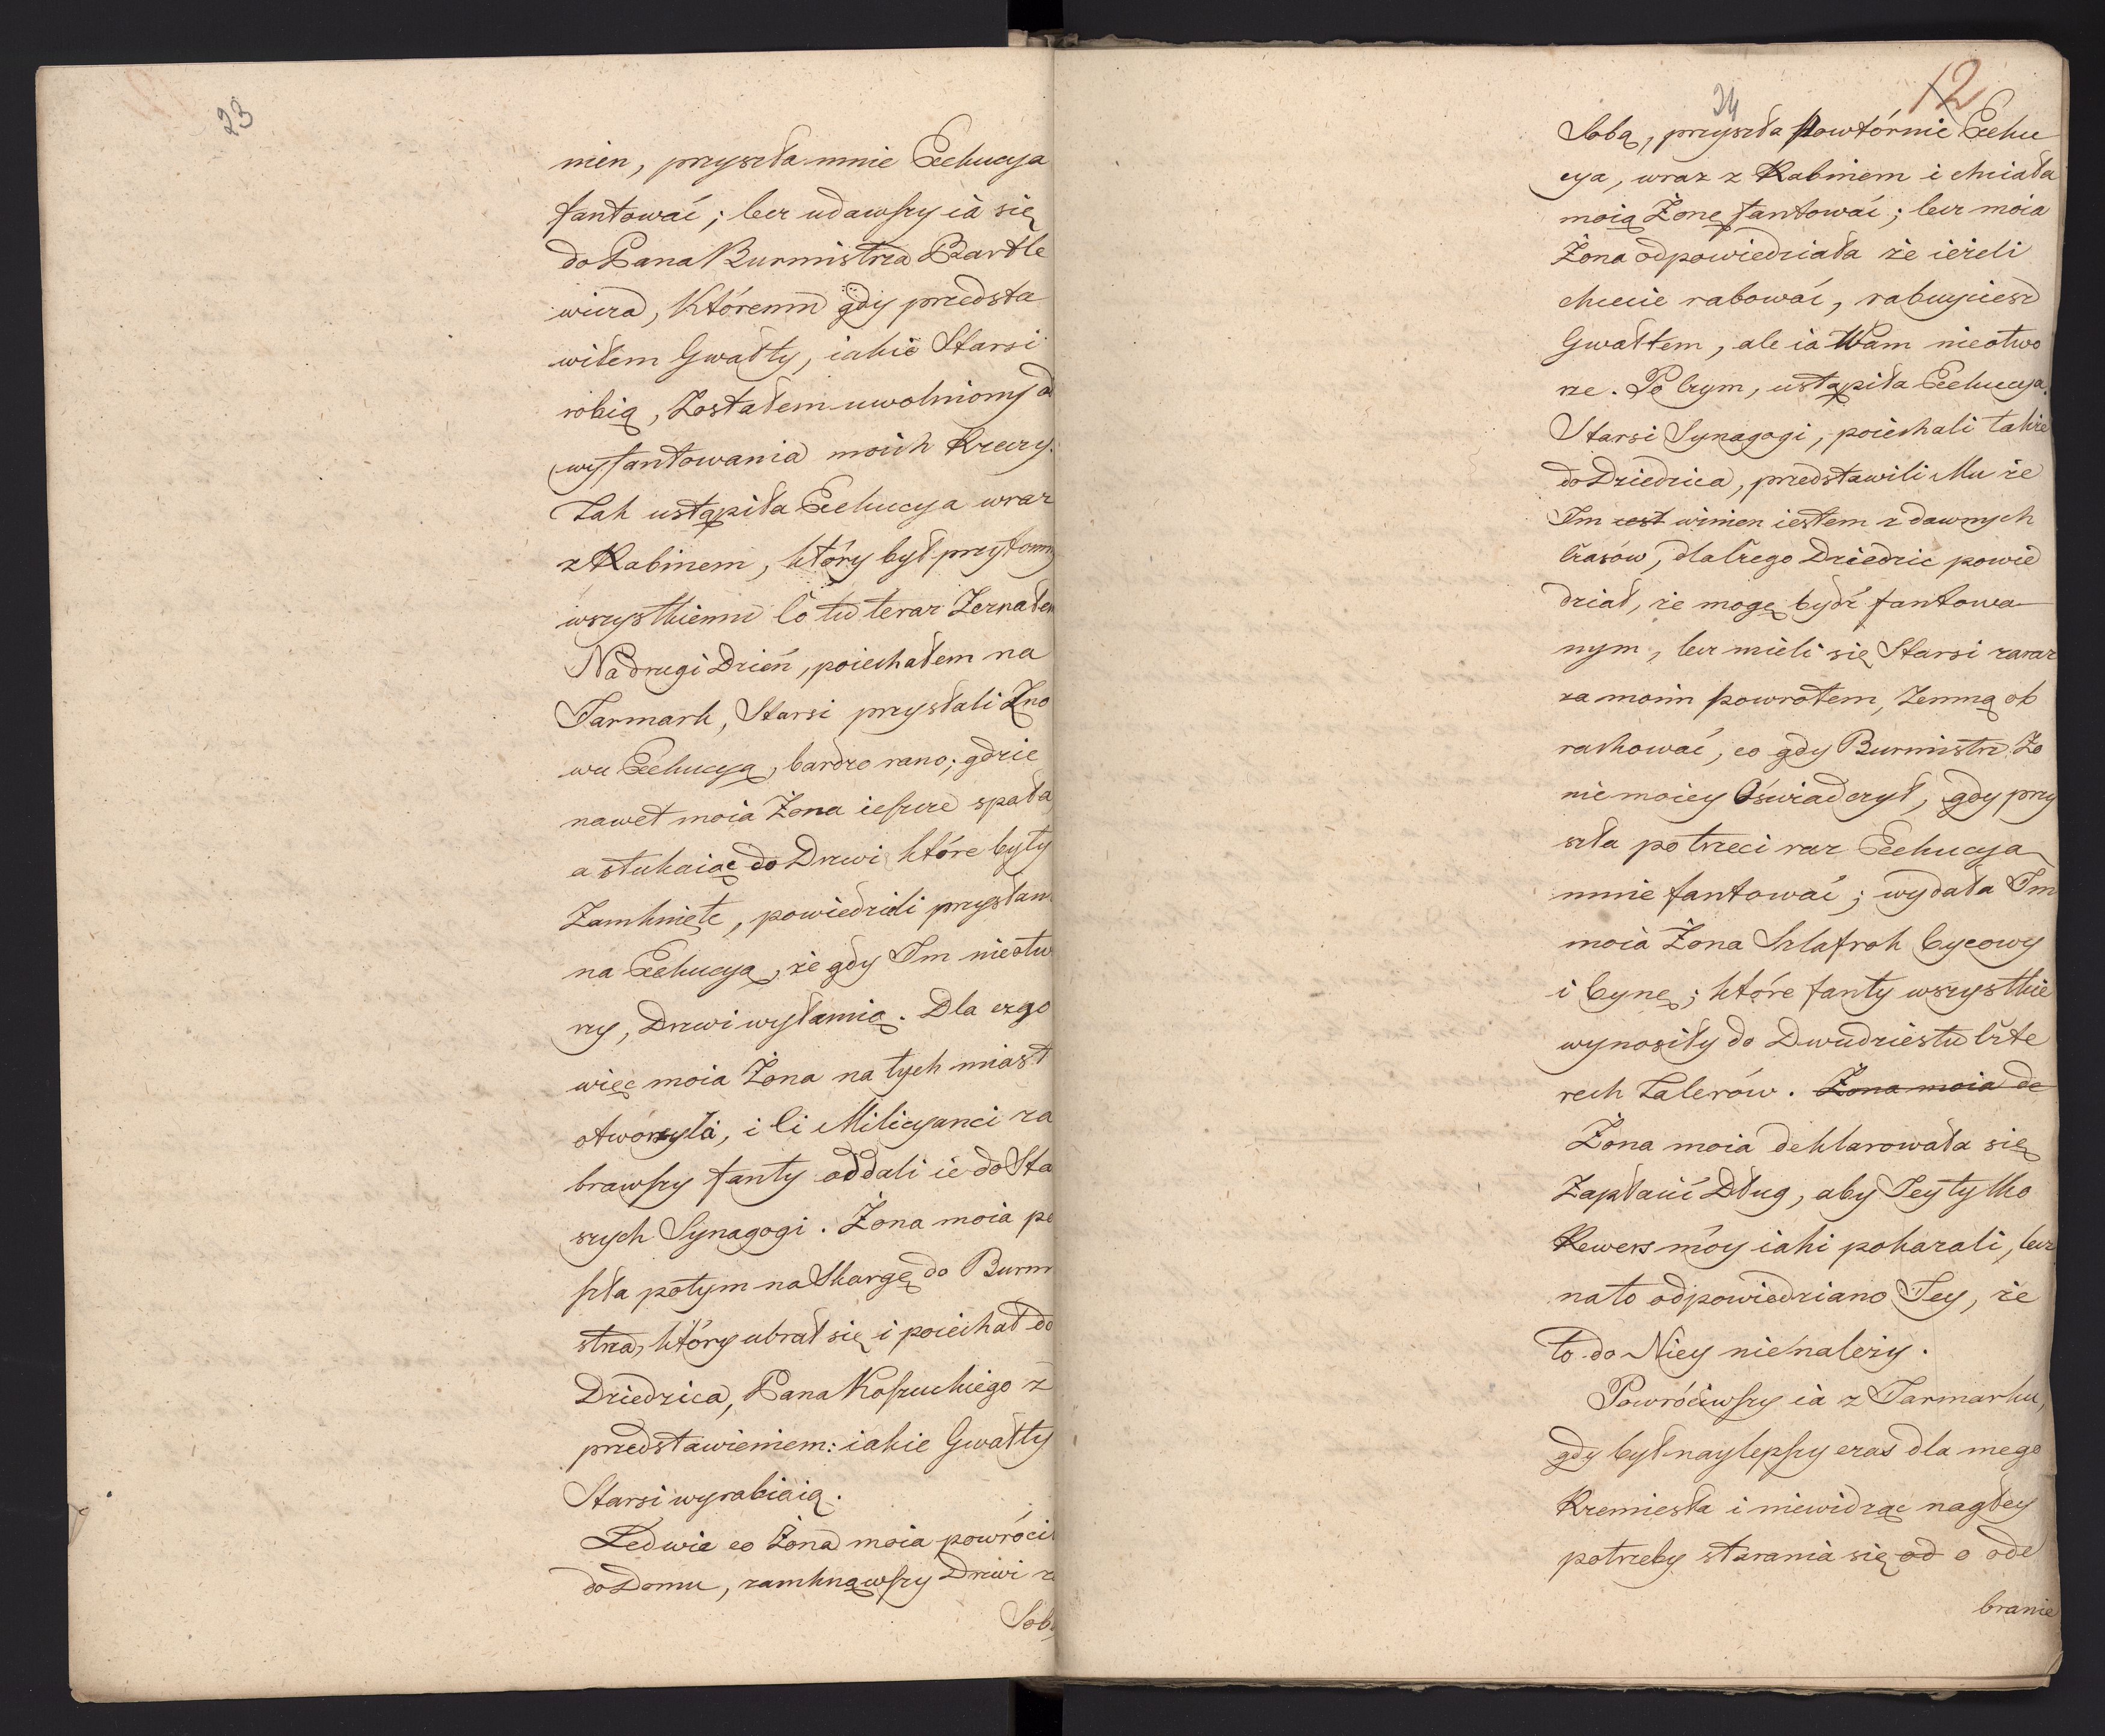 23
nien, przyszła mnie Exekucya
fantować; lecz udawszy ia się
do Pana Burmistrza Bartle
wicza, Któremu gdy przedsta
wiłem Gwałty, iakie Starsi
robią, Zostałem uwolniony od
wyfantowania moich Rzeczy.
Tak ustąpiła Exekucya wraz
z Rabinem, który był przytomny
wszystkiemu Co tu teraz Zeznałem
Na drugi Dzień, poiechałem na
Jarmark, Starsi przysłali Zno
wu Exekucyą, bardzo rano; gdzie
nawet moia Żona ieszcze spała
a stukaiąc do Drzwi które były
Zamknięte, powiedzieli przysłani
na Exekucyą, że gdy Im nieotwo
rzy, Drzwi wyłamią. Dla czego
więc moia Żona na tych miast
otworzyła, i Ci Milicyanci za
brawszy fanty oddali ie do Sta
rszych Synagogi. Żona moia po
szła potym na Skargę do Burmi
strza, który ubrał się i poiechał do
Dziedzica, Pana Koszuckiego z
przedstawieniem: iakie Gwałty
Starsi wyrabiaią.
Ledwie co Żona moia powróci
do Domu, zamknąwszy Drzwi za
Sobą
24
12
Sobą, przyszła Powtórnie Exeku
cya, wraz z Rabinem i chciała
moią Żonę fantować; lecz moia
Żona odpowiedziała że ieżeli
chcecie rabować, rabuyciesz
Gwałtem, ale ia Wam nieotwo
rzę. Po Czym, ustąpiła Exekucya.
Starsi Synagogi, poiechali także
do Dziedzica, przedstawili Mu że
Im iest winien iestem z dawnych
Czasów, dla Czego Dziedzic powie
dział, że mogę bydź fantowa
nym, lecz mieli się Starsi zaraz
za moim powrotem, Zemną ob
rachować, co gdy Burmistrz Żo
nie moiey Oświadczył, gdy przy
szła po trzeci raz Exekucya
mnie fantować; wydała Im
moia Żona Szlafrok Cycowy
i Cynę; które fanty wszystkie
wynosiły do Dwudziestu Czte
rech Talerów. Żona moia de
Żona moia deklarowała się
Zapłacić Dług, aby Jey tylko
Rewers móy iaki pokazali, lecz
na to odpowiedziano Jey, że
to do Niey nienależy.
Powróciwszy ia z Jarmarku,
gdy był naylepszy czas dla mego
Rzemiesła i niewidząc nagłey
potrzeby starania się od o ode
branie